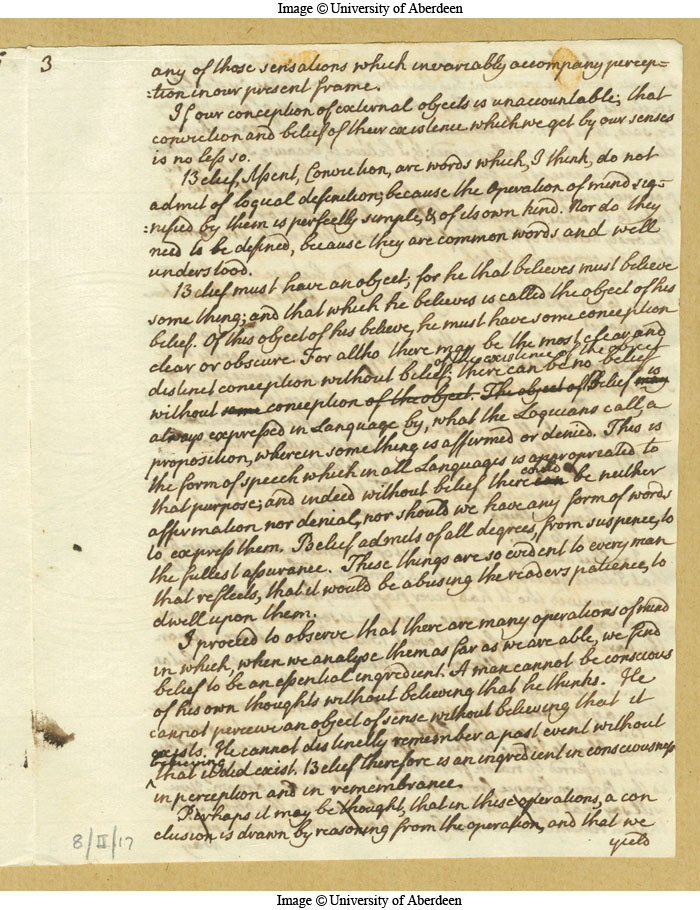 Image © University of Aberdeen
3
any of those sensations which invariably accompany percep=
=tion in our present frame.
If our conception of external objects is unaccountable; that
conviction and belief of their existence which we get by our senses
is no less so.
Belief, Assent, Conviction, are words which, I think, do not
admit of logical definition; because the operation of mind sig=
=nified by them is perfectly simple, & of its own kind. Nor do they
need to be defined, because they are common words and well
understood.
Belief must have an object; for he that believes must believe
something; and that which he believes is called the object of his
belief. Of this object of his believe, he must have some conception
clear or obscure. For altho there may be the most clear and
of the existence of the object
distinct conception without belief; there can be no belief
without some conception of the object. The object of Belief may is
always expressed in Language by, what the Logicians call, a
proposition, wherein something is affirmed or denied. This is
the form of speech which in all Languages is appropriated to
could
that purpose; and indeed without belief there can be neither
affirmation nor denial, nor should we have any form of words
to express them. Belief admits of all degrees, from suspence, to
the fullest assurance. These things are so evident to every man
that reflects, that it would be abusing the readers patience, to
dwell upon them.
I proceed to observe that there are many operations of mind
in which, when we analyse them as far as we are able, we find
belief to be an essential ingredient. A man cannot be conscious
of his own thoughts without believing that he thinks. He
cannot perceive an object of sense without believing that it
exists. He cannot distinctly remember a past event without
believing
^ that it did exist. Belief therefore is an ingredient in consciousness
in perception and in remembrance.
Perhaps it may be thought, that in these operations, a con
clusion is drawn by reasoning from the operation, and that we
yield
8/II/17
Image © University of Aberdeen